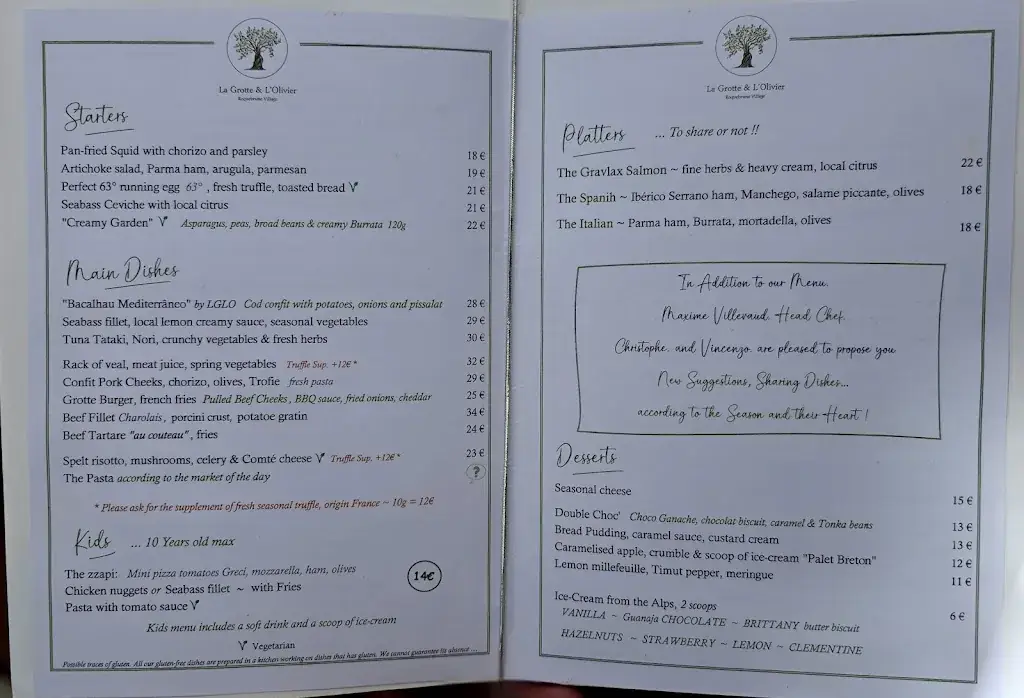 La Grotte & L'Olivier
Roquebrune Village
Starters
Pan-fried Squid with chorizo and parsley 18 €
Artichoke salad, Parma ham, arugula, parmesan 19 €
Perfect 63° running egg 63° , fresh truffle, toasted bread 21 €
Seabass Ceviche with local citrus 21 €
"Creamy Garden" Asparagus, peas, broad beans & creamy Burrata 120g 22 €
Main Dishes
"Bacalhau Mediterrâneo" by LGLO Cod confit with potatoes, onions and pissalat 28 €
Seabass fillet, local lemon creamy sauce, seasonal vegetables 29 €
Tuna Tataki, Nori, crunchy vegetables & fresh herbs 30 €
Rack of veal, meat juice, spring vegetables Truffle Sup. +12€ * 32 €
Confit Pork Cheeks, chorizo, olives, Trofie fresh pasta 29 €
Grotte Burger, french fries Pulled Beef Cheeks, BBQ sauce, fried onions, cheddar 25 €
Beef Fillet Charolais, porcini crust, potatoe gratin 34 €
Beef Tartare "au couteau", fries 24 €
Spelt risotto, mushrooms, celery & Comté cheese Truffle Sup. +12€ * 23 €
The Pasta according to the market of the day ?
* Please ask for the supplement of fresh seasonal truffle, origin France ~ 10g = 12€
Kids ... 10 Years old max
The zzapi: Mini pizza tomatoes Greci, mozzarella, ham, olives
Chicken nuggets or Seabass fillet ~ with Fries 14€
Pasta with tomato sauce
Kids menu includes a soft drink and a scoop of ice-cream
Vegetarian
Possible traces of gluten. All our gluten-free dishes are prepared in a kitchen working on dishes that has gluten. We cannot guarantee its absence ...
La Grotte & L'Olivier
Roquebrune Village
Platters ... To share or not !!
The Gravlax Salmon ~ fine herbs & heavy cream, local citrus 22 €
The Spanih ~ Ibérico Serrano ham, Manchego, salame piccante, olives 18 €
The Italian ~ Parma ham, Burrata, mortadella, olives 18 €
In Addition to our Menu,
Maxime Villevaud, Head Chef,
Christophe, and Vincenzo, are pleased to propose you
New Suggestions, Sharing Dishes...
according to the Season and their Heart !
Desserts
Seasonal cheese 15 €
Double Choc' Choco Ganache, chocolat biscuit, caramel & Tonka beans 13 €
Bread Pudding, caramel sauce, custard cream 13 €
Caramelised apple, crumble & scoop of ice-cream "Palet Breton" 12 €
Lemon millefeuille, Timut pepper, meringue 11 €
Ice-Cream from the Alps, 2 scoops 6 €
VANILLA ~ Guanaja CHOCOLATE ~ BRITTANY butter biscuit
HAZELNUTS ~ STRAWBERRY ~ LEMON ~ CLEMENTINE